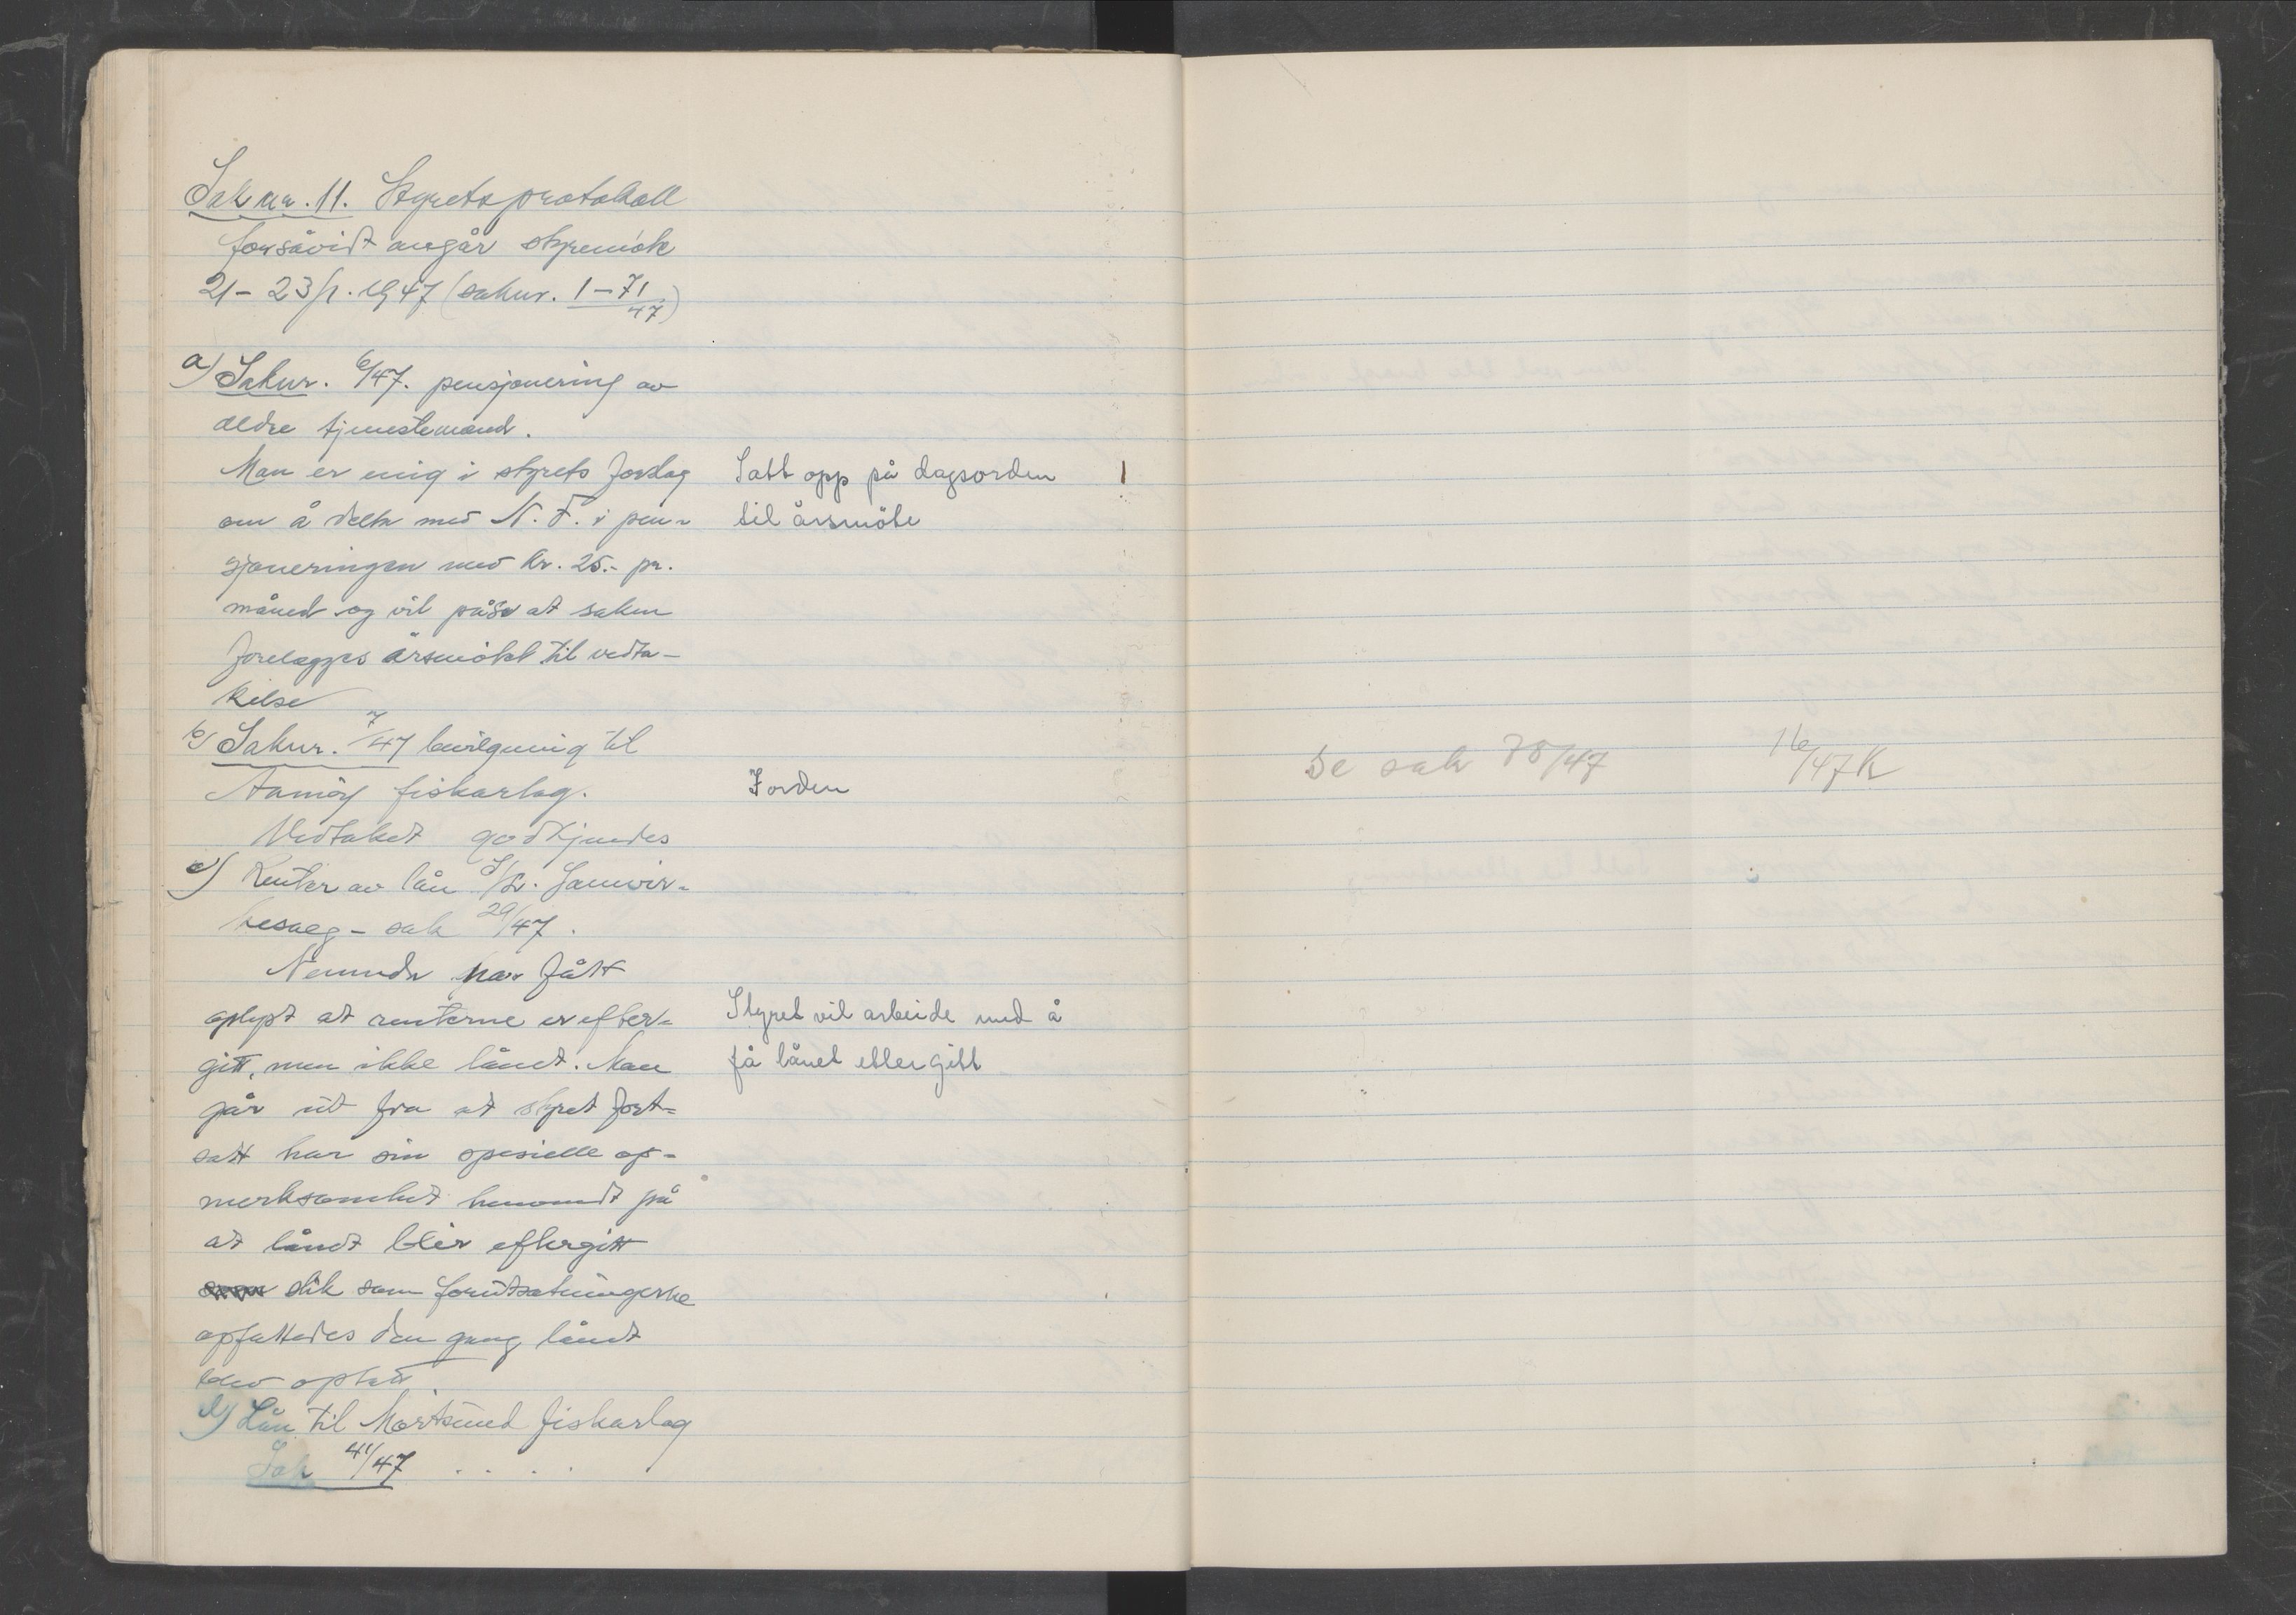 Sak nr. 11. Styrets protokoll
forsåvidt angår styremøte
21-23/1. 1947 (saknr. 1-71/47)
a) Saknr. 6/47. pensjonering av
ældre tjenestemænd.
Man er enig i styrets forslag
om å delta med N. F. i pen-
sjoneringen med kr. 25.- pr.
måned og vil påse at saken
forelægges årsmötet til vedta-
kelse
Satt opp på dagsorden
til årsmöte
b) Saknr. 7/47 bevilgning til
fiskarlag.
Vedtaket godkjendes
I orden
Se sak 78/47
16/47 K
c) Renter av lån
sak 29/47.
Nemnda har fått
oplyst at renterne er efter-
gitt, men ikke lånet. Man
går ut fra at styret fort-
satt har sin spesielle op-
merksomhet henvendt på
at lånet blir eftergitt
slik som forutsætningerne
opfattedes den gang lånet
blev optatt
Styret vil arbeide med å
få lånet ettergitt
d) Lån til Mortsund fiskarlag
Sak 41/47 . . . .